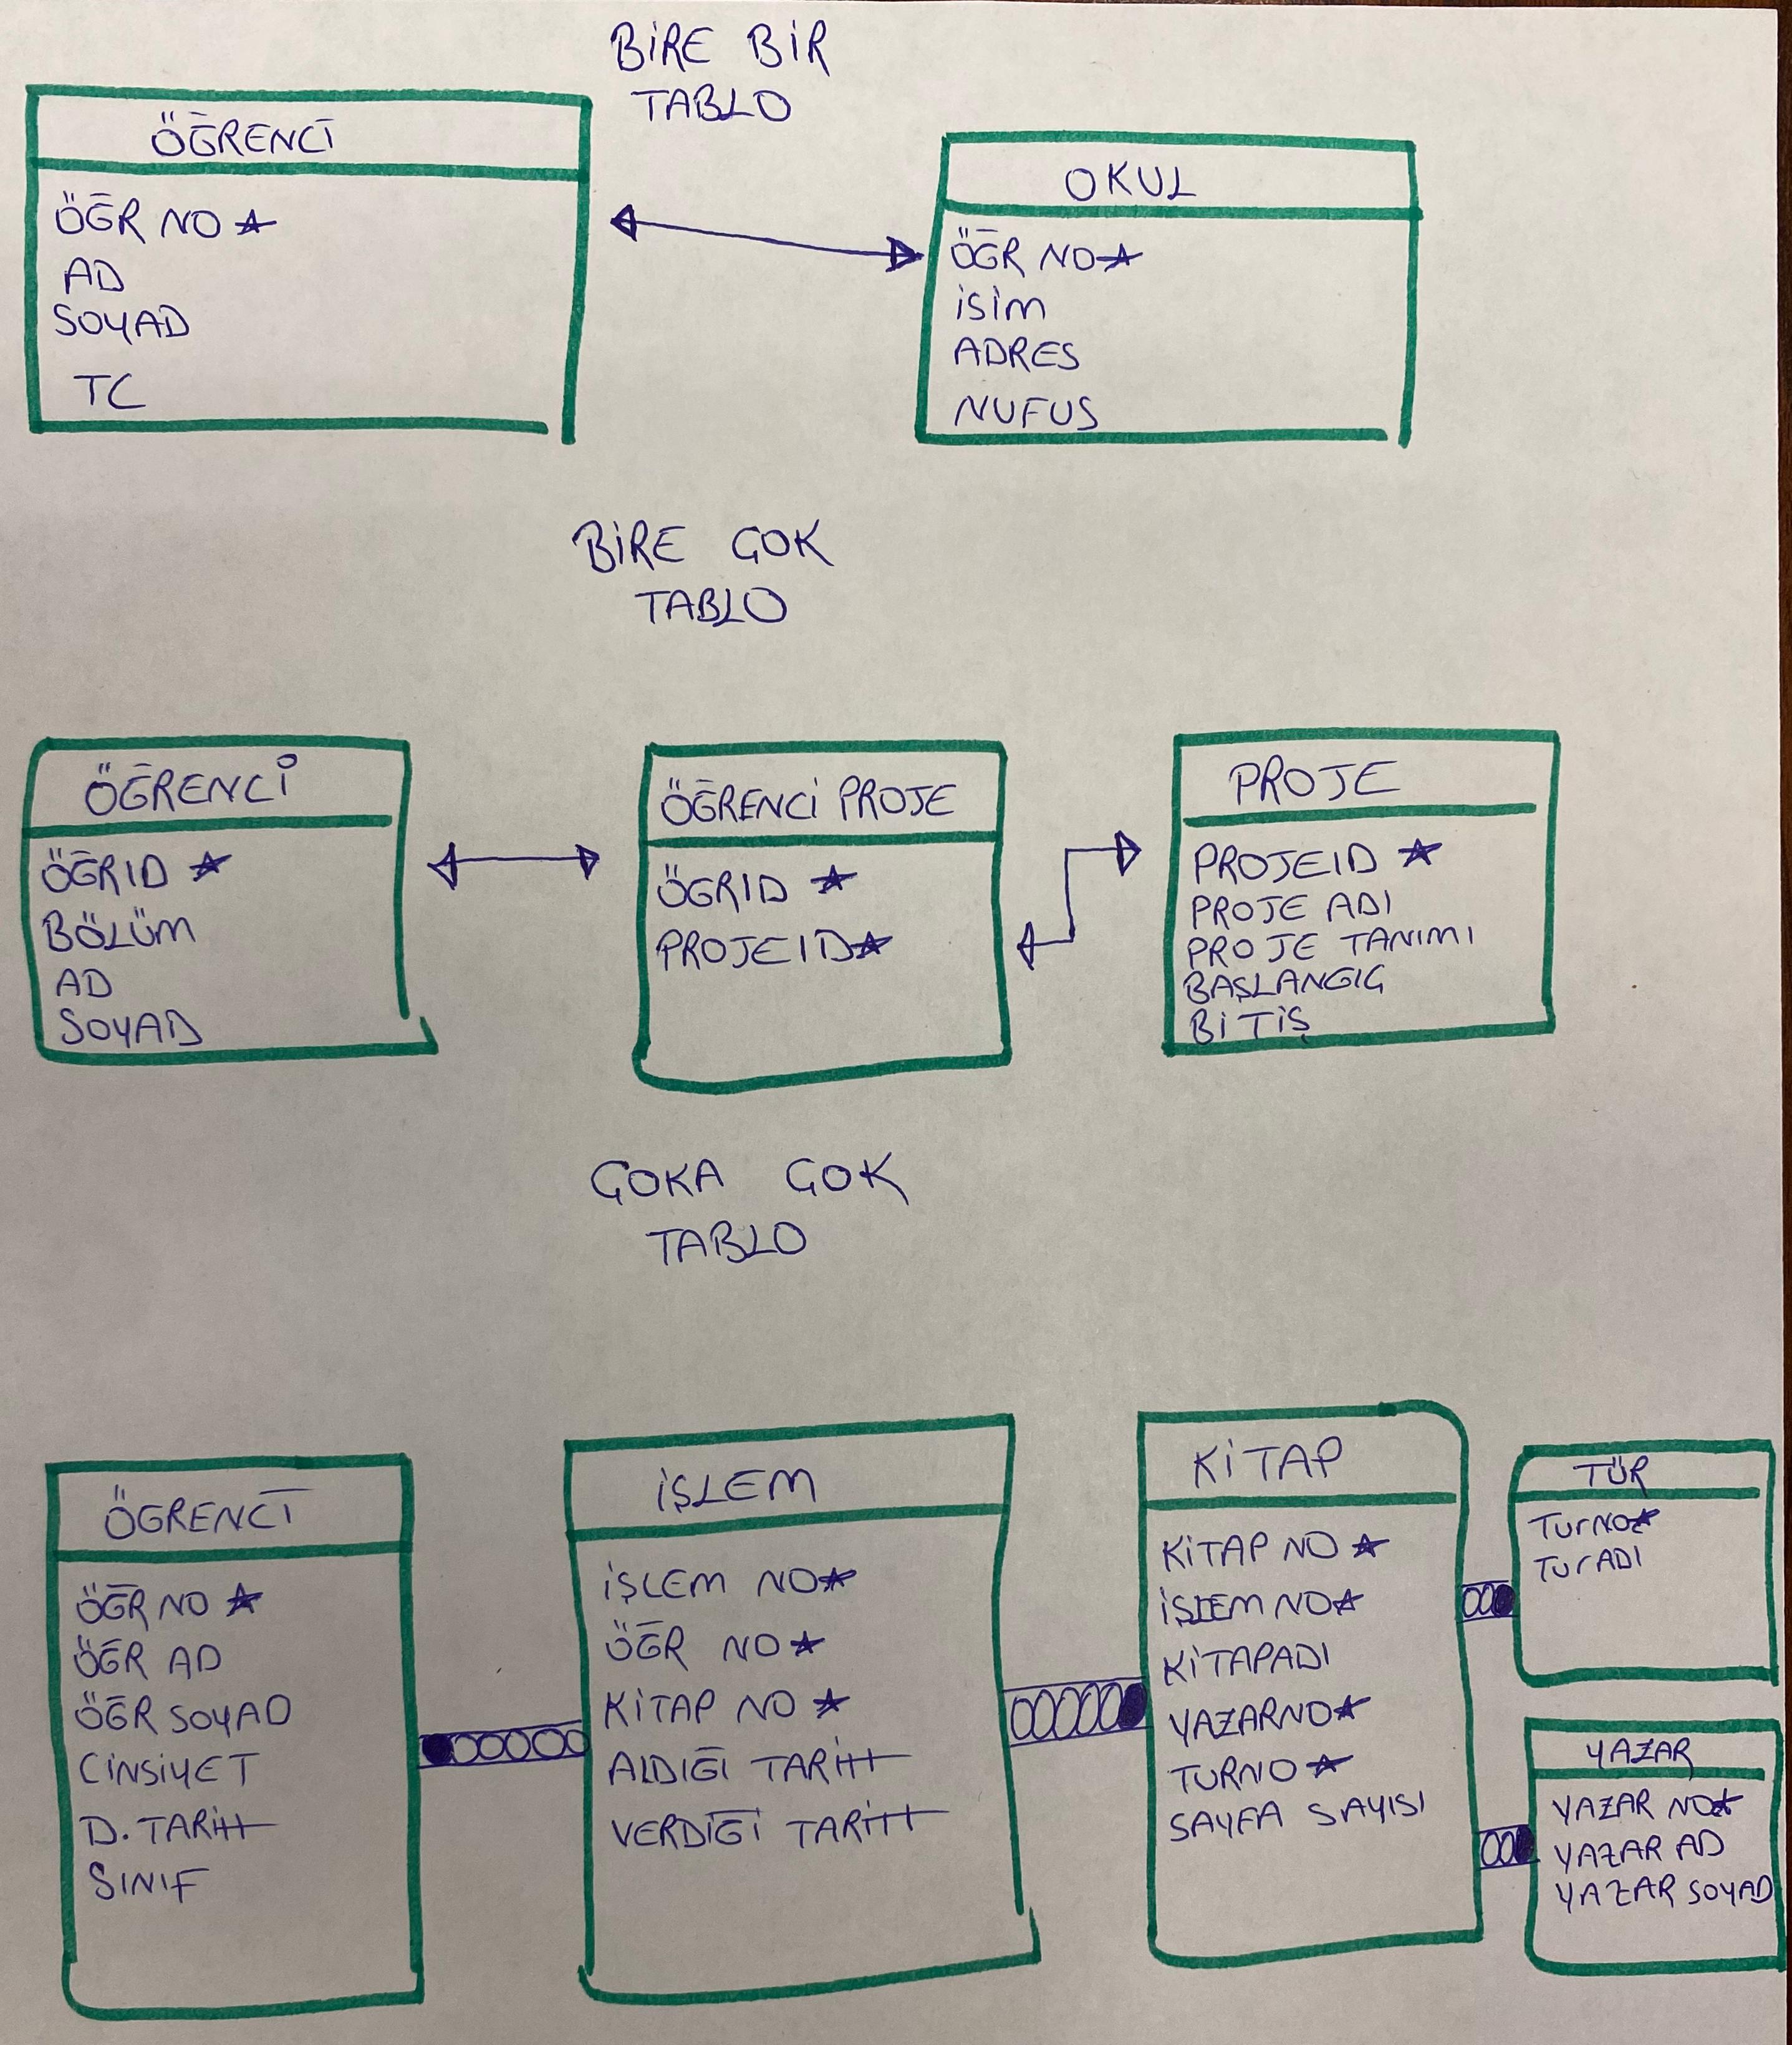 BİRE BİR
TABLO
ÖĞRENCİ
ÖĞR NO ★
AD
SOYAD
TC
OKUL
ÖĞR NO ★
İSİM
ADRES
NUFUS
BİRE ÇOK
TABLO
ÖĞRENCİ
ÖĞRID ★
BÖLÜM
AD
SOYAD
ÖĞRENCİ PROJE
ÖGRID ★
PROJEID ★
PROJE
PROJEID ★
PROJE ADI
PROJE TANIMI
BAŞLANGIÇ
BİTİŞ
ÇOKA ÇOK
TABLO
ÖGRENCİ
ÖĞR NO ★
ÖĞR AD
ÖĞR SOYAD
CİNSİYET
D. TARİH
SINIF
İŞLEM
İŞLEM NO ★
ÖĞR NO ★
KİTAP NO ★
ALDIĞI TARİH
VERDİĞİ TARİH
KİTAP
KİTAP NO ★
İŞLEM NO ★
KİTAPADI
YAZARNO ★
TURNO ★
SAYFA SAYISI
TÜR
TurNO ★
TurADI
YAZAR
YAZAR NO ★
YAZAR AD
YAZAR SOYAD